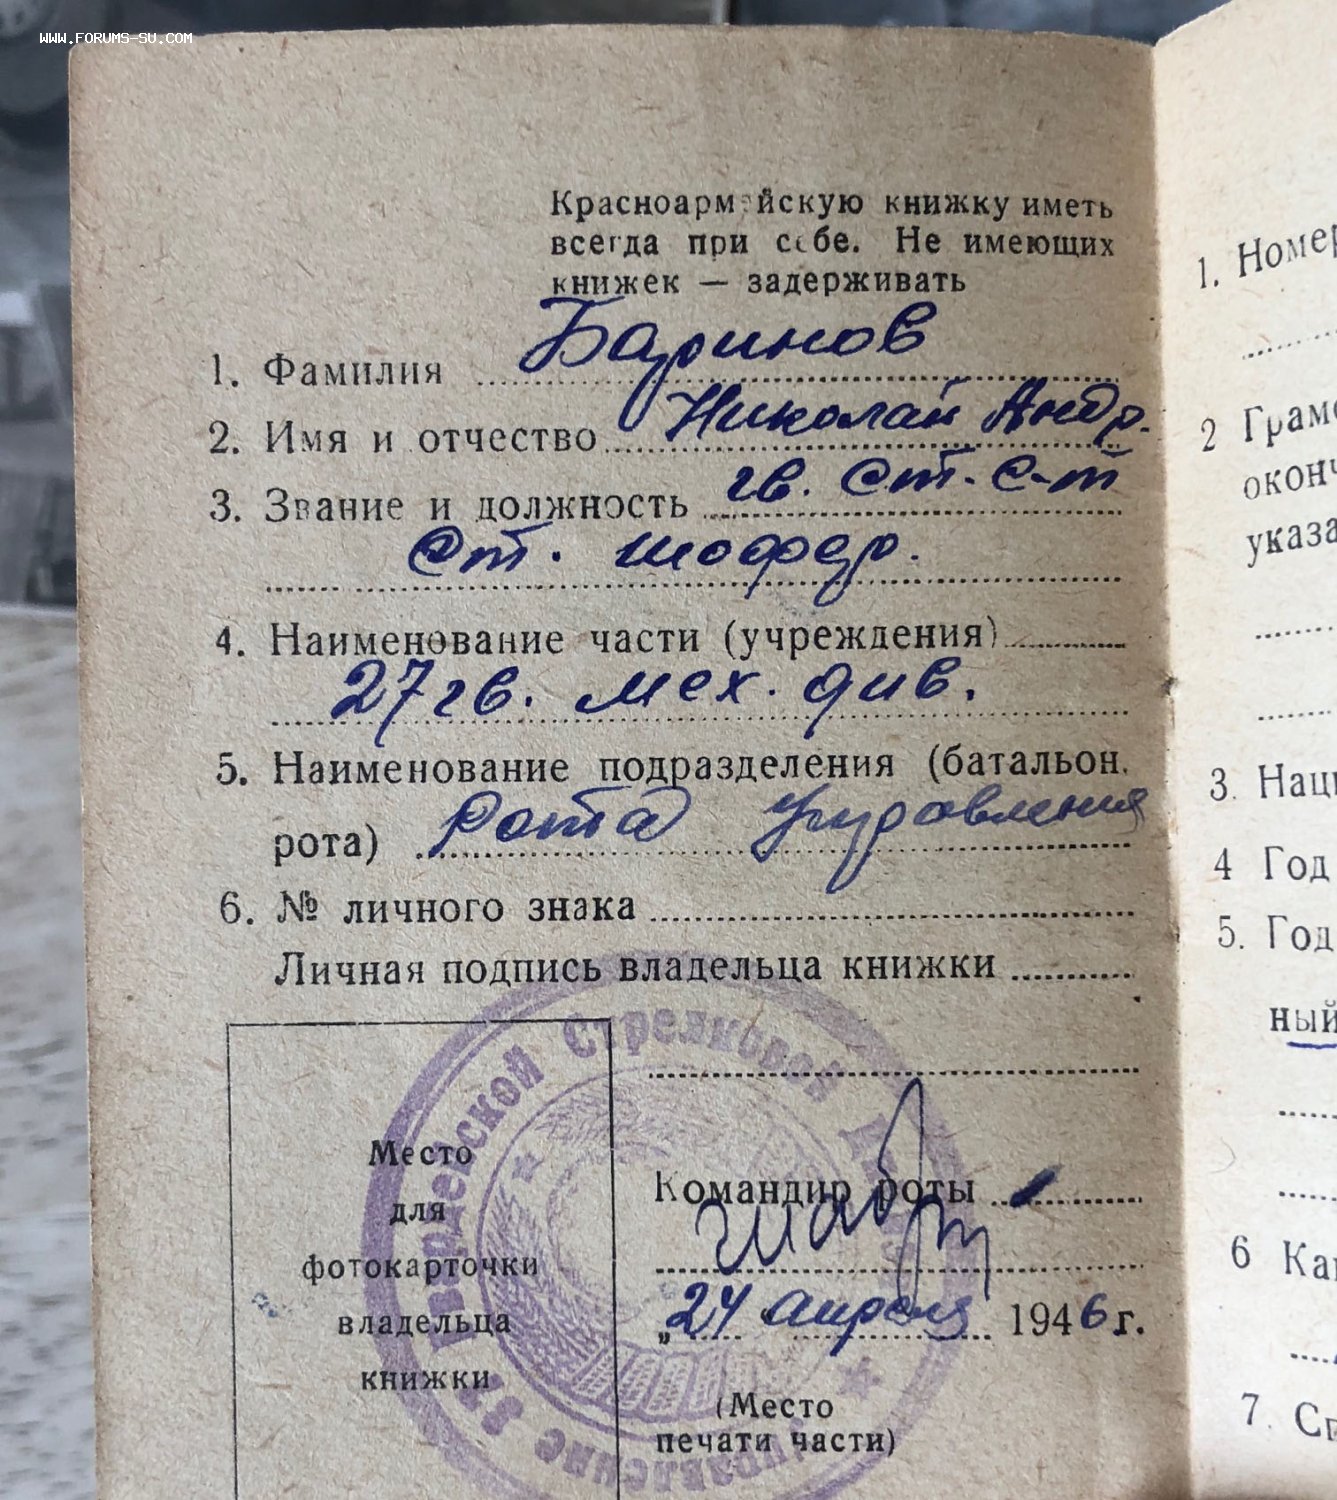 WWW.FORUMS-SU.COM
Красноармейскую книжку иметь
всегда при себе. Не имеющих
книжек — задерживать
1. Фамилия Баринов
2. Имя и отчество Николай Андр.
3. Звание и должность гв. ст. с-т
ст. шофер.
4. Наименование части (учреждения)
27 гв. мех. див.
5. Наименование подразделения (батальон,
рота) Рота Управления
6. № личного знака
Личная подпись владельца книжки
Место
для
фотокарточки
владельца
книжки
Командир роты
„24 апреля 1946 г.
(Место
печати части)
Управление Гвардейской Стрелковой
1. Номер
2 Грам
оконч
указа
3. Наци
4 Год
5. Год
ный
6 Ка
7. Сп